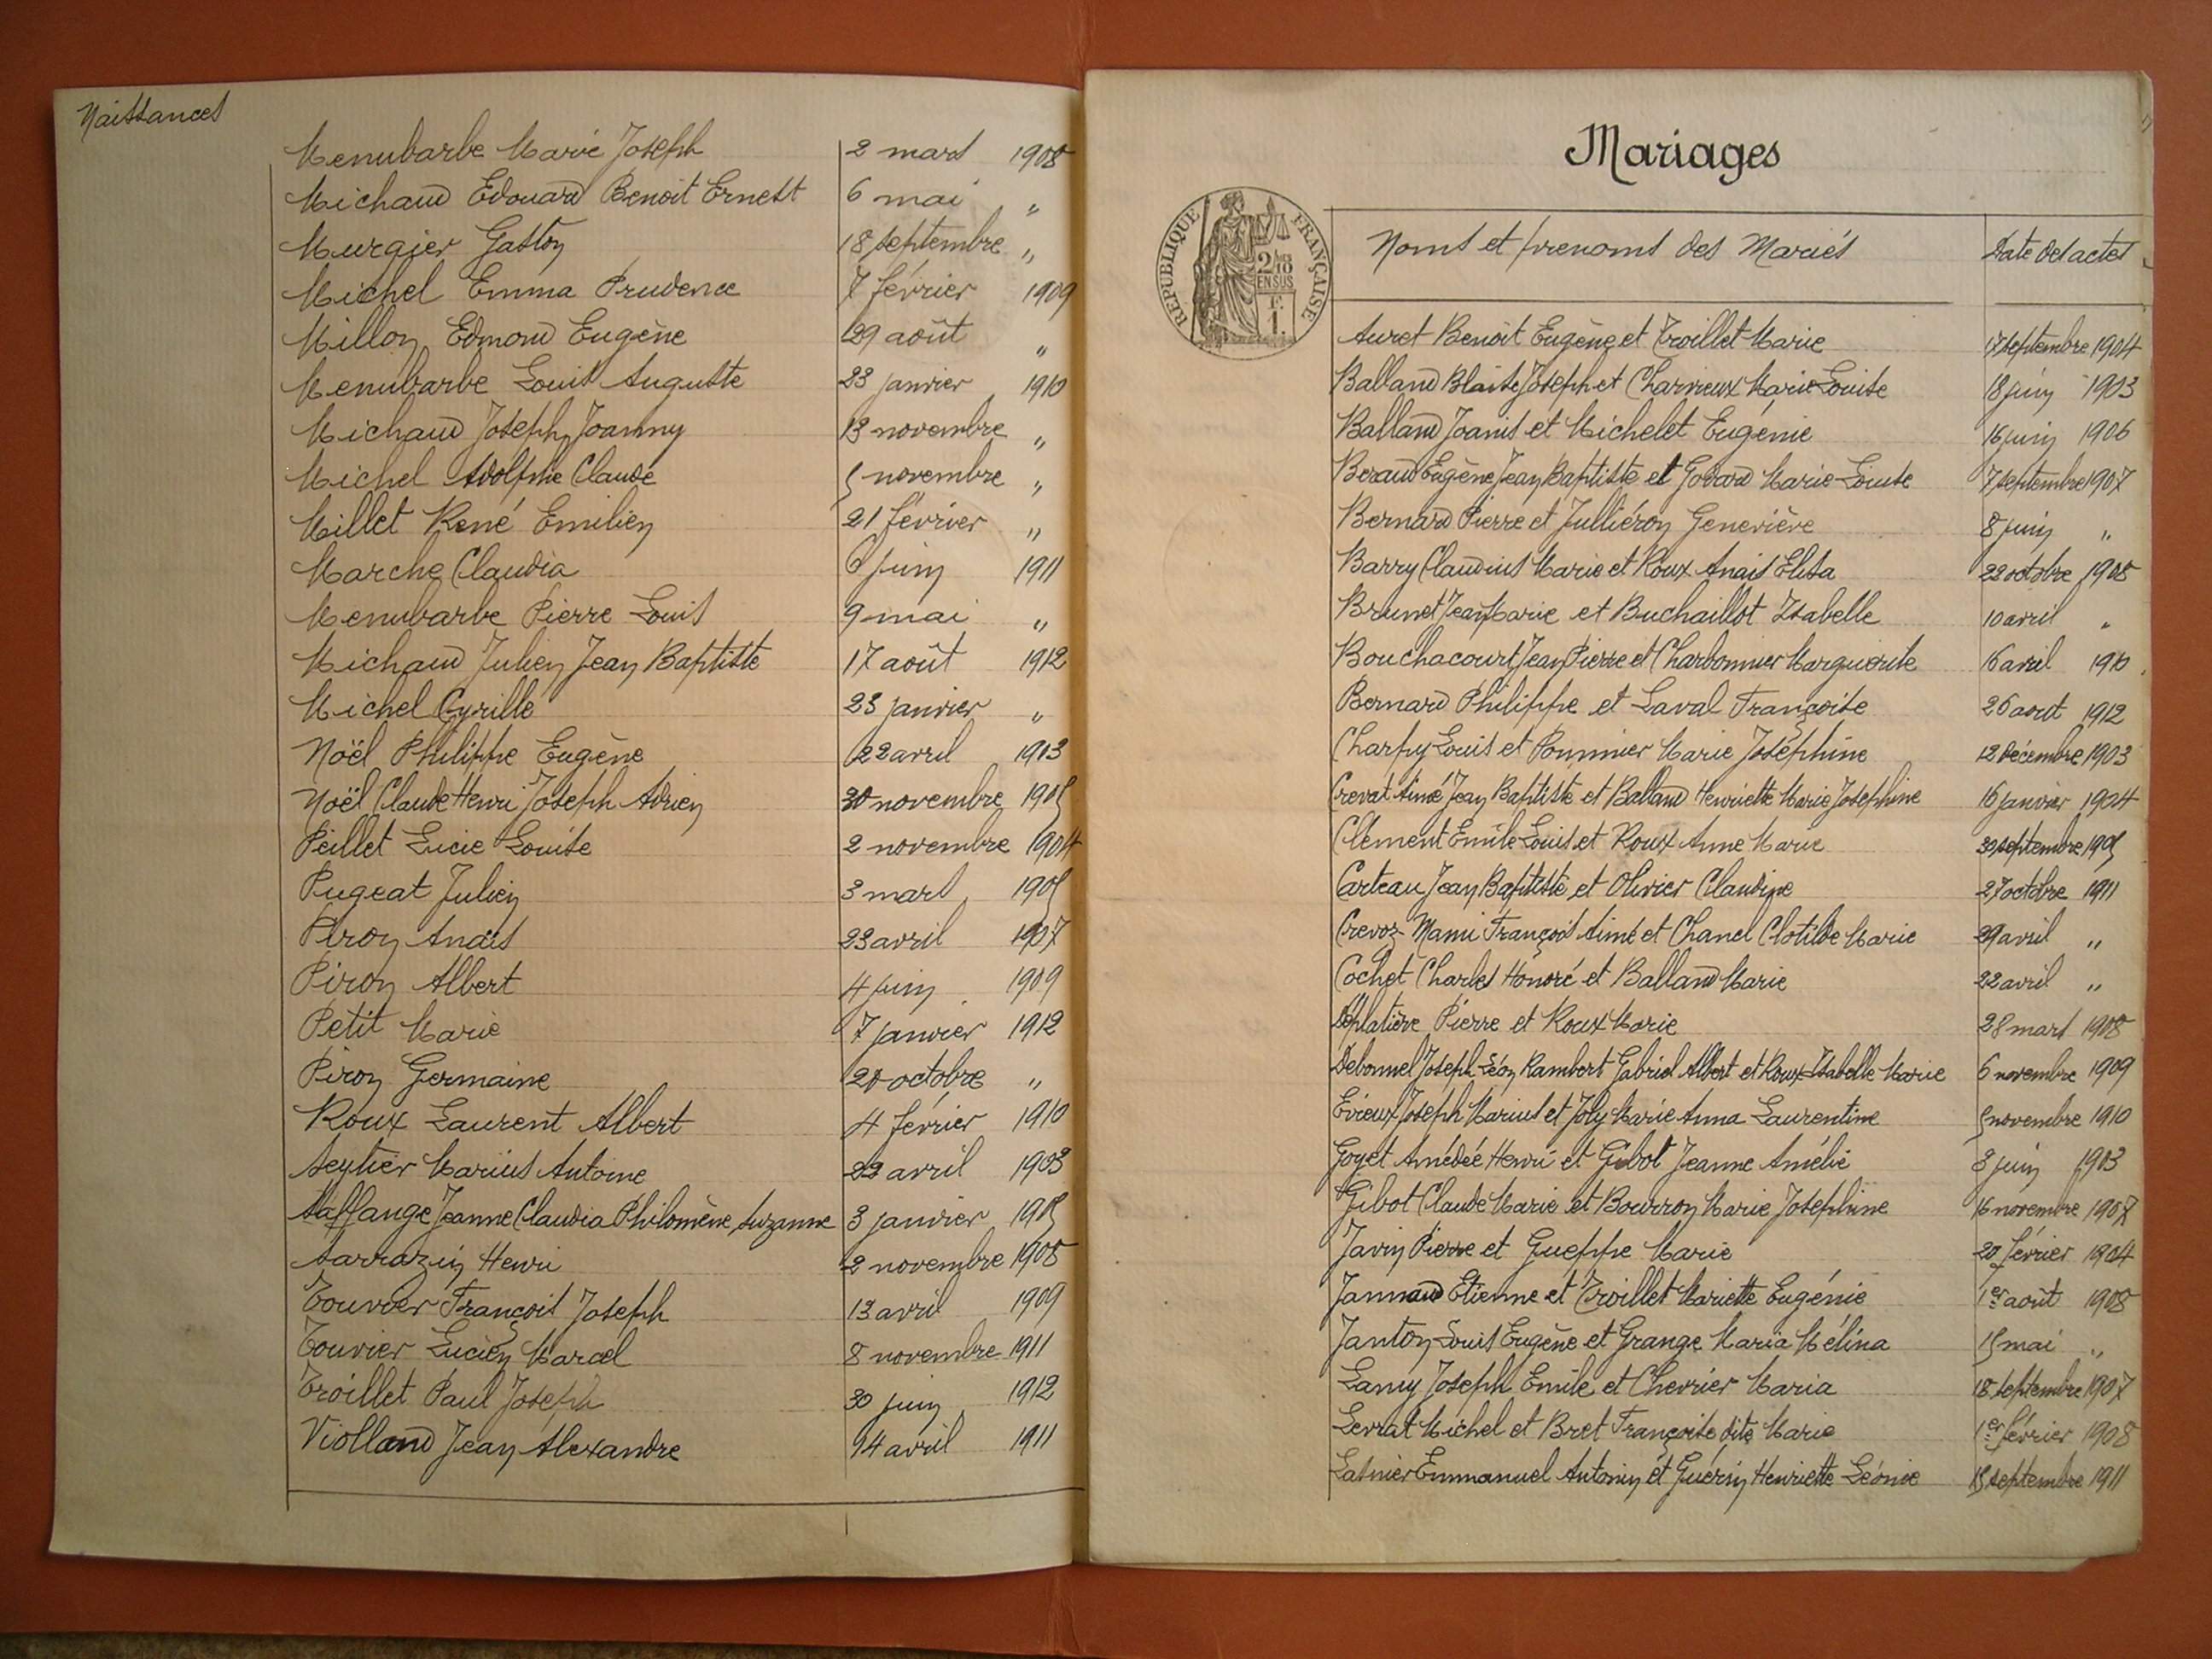 Naissances
Menubarbe Marie Joseph 2 mars 1908
Michaud Edouard Benoit Ernest 6 mai "
Murgier Gaston 18 septembre "
Michel Emma Prudence 7 février 1909
Millon Edmond Eugène 29 août "
Menubarbe Louis Auguste 23 janvier 1910
Michaud Joseph Joanny 13 novembre "
Michel Adolphe Claude 5 novembre "
Millet René Emilien 21 février "
Marche Claudia 6 juin 1911
Menubarbe Pierre Louis 9 mai "
Michaud Julien Jean Baptiste 17 août 1912
Michel Cyrille 23 janvier "
Noël Philippe Eugène 22 avril 1903
Noël Claude Henri Joseph Adrien 30 novembre 1905
Peillet Lucie Louise 2 novembre 1904
Pugeat Julien 3 mars 1905
Piron Anaïs 23 avril 1907
Piron Albert 4 juin 1909
Petit Marie 7 janvier 1912
Piron Germaine 20 octobre "
Roux Laurent Albert 4 février 1910
Seytier Marius Antoine 22 avril 1903
Saffange Jeanne Claudia Philomène Suzanne 3 janvier 1905
Sarrazin Henri 2 novembre 1908
Touvier François Joseph 13 avril 1909
Touvier Lucien Marcel 8 novembre 1911
Troillet Paul Joseph 30 juin 1912
Violland Jean Alexandre 14 avril 1911
Mariages
RÉPUBLIQUE FRANÇAISE
2/10 EN SUS
1 F.
Noms et prenoms des Mariés Date des actes
Auret Benoit Eugène et Troillet Marie 17 septembre 1904
Balland Blaise Joseph et Charvieux Marie Louise 18 juin 1903
Balland Joanis et Michelet Eugénie 16 juin 1906
Beraud Eugène Jean Baptiste et Godard Marie Louise 7 septembre 1907
Bernard Pierre et Julliéron Geneviève 8 juin "
Barry Claudius Marie et Roux Anais Elisa 22 octobre 1908
Brunet Jean Marie et Buchaillot Isabelle 10 avril "
Bouchacourt Jean Pierre et Charbonnier Marguerite 16 avril 1910
Bernard Philippe et Laval Françoise 26 aout 1912
Charpy Louis et Pommier Marie Joséphine 12 décembre 1903
Crevat Aimé Jean Baptiste et Balland Henriette Marie Josephine 16 janvier 1904
Clément Emile Louis et Roux Anne Marie 30 septembre 1905
Carteau Jean Baptiste et Olivier Claudine 27 octobre 1911
Crevoz Mami François Aimé et Chanel Clotilde Marie 29 avril "
Cochet Charles Honoré et Balland Marie 22 avril "
Déplatière Pierre et Roux Marie 28 mars 1908
Debonnel Joseph Léon Rambert Gabriel Albert et Roux Isabelle Marie 6 novembre 1909
Evieux Joseph Marius et Joly Marie Anna Laurentine 5 novembre 1910
Goyet Amédée Henri et Gibot Jeanne Amélie 3 juin 1903
Gibot Claude Marie et Bourron Marie Josephine 16 novembre 1907
Javin Pierre et Gueppe Marie 20 février 1904
Jannaud Etienne et Troillet Mariette Eugénie 1er août 1908
Janton Louis Eugène et Grange Maria Mélina 15 mai "
Lamy Joseph Emile et Chevrier Maria 18 septembre 1907
Levrat Michel et Bret Françoise dite Marie 1er février 1908
Lasnier Emmanuel Antonin et Guérin Henriette Léonie 15 septembre 1911